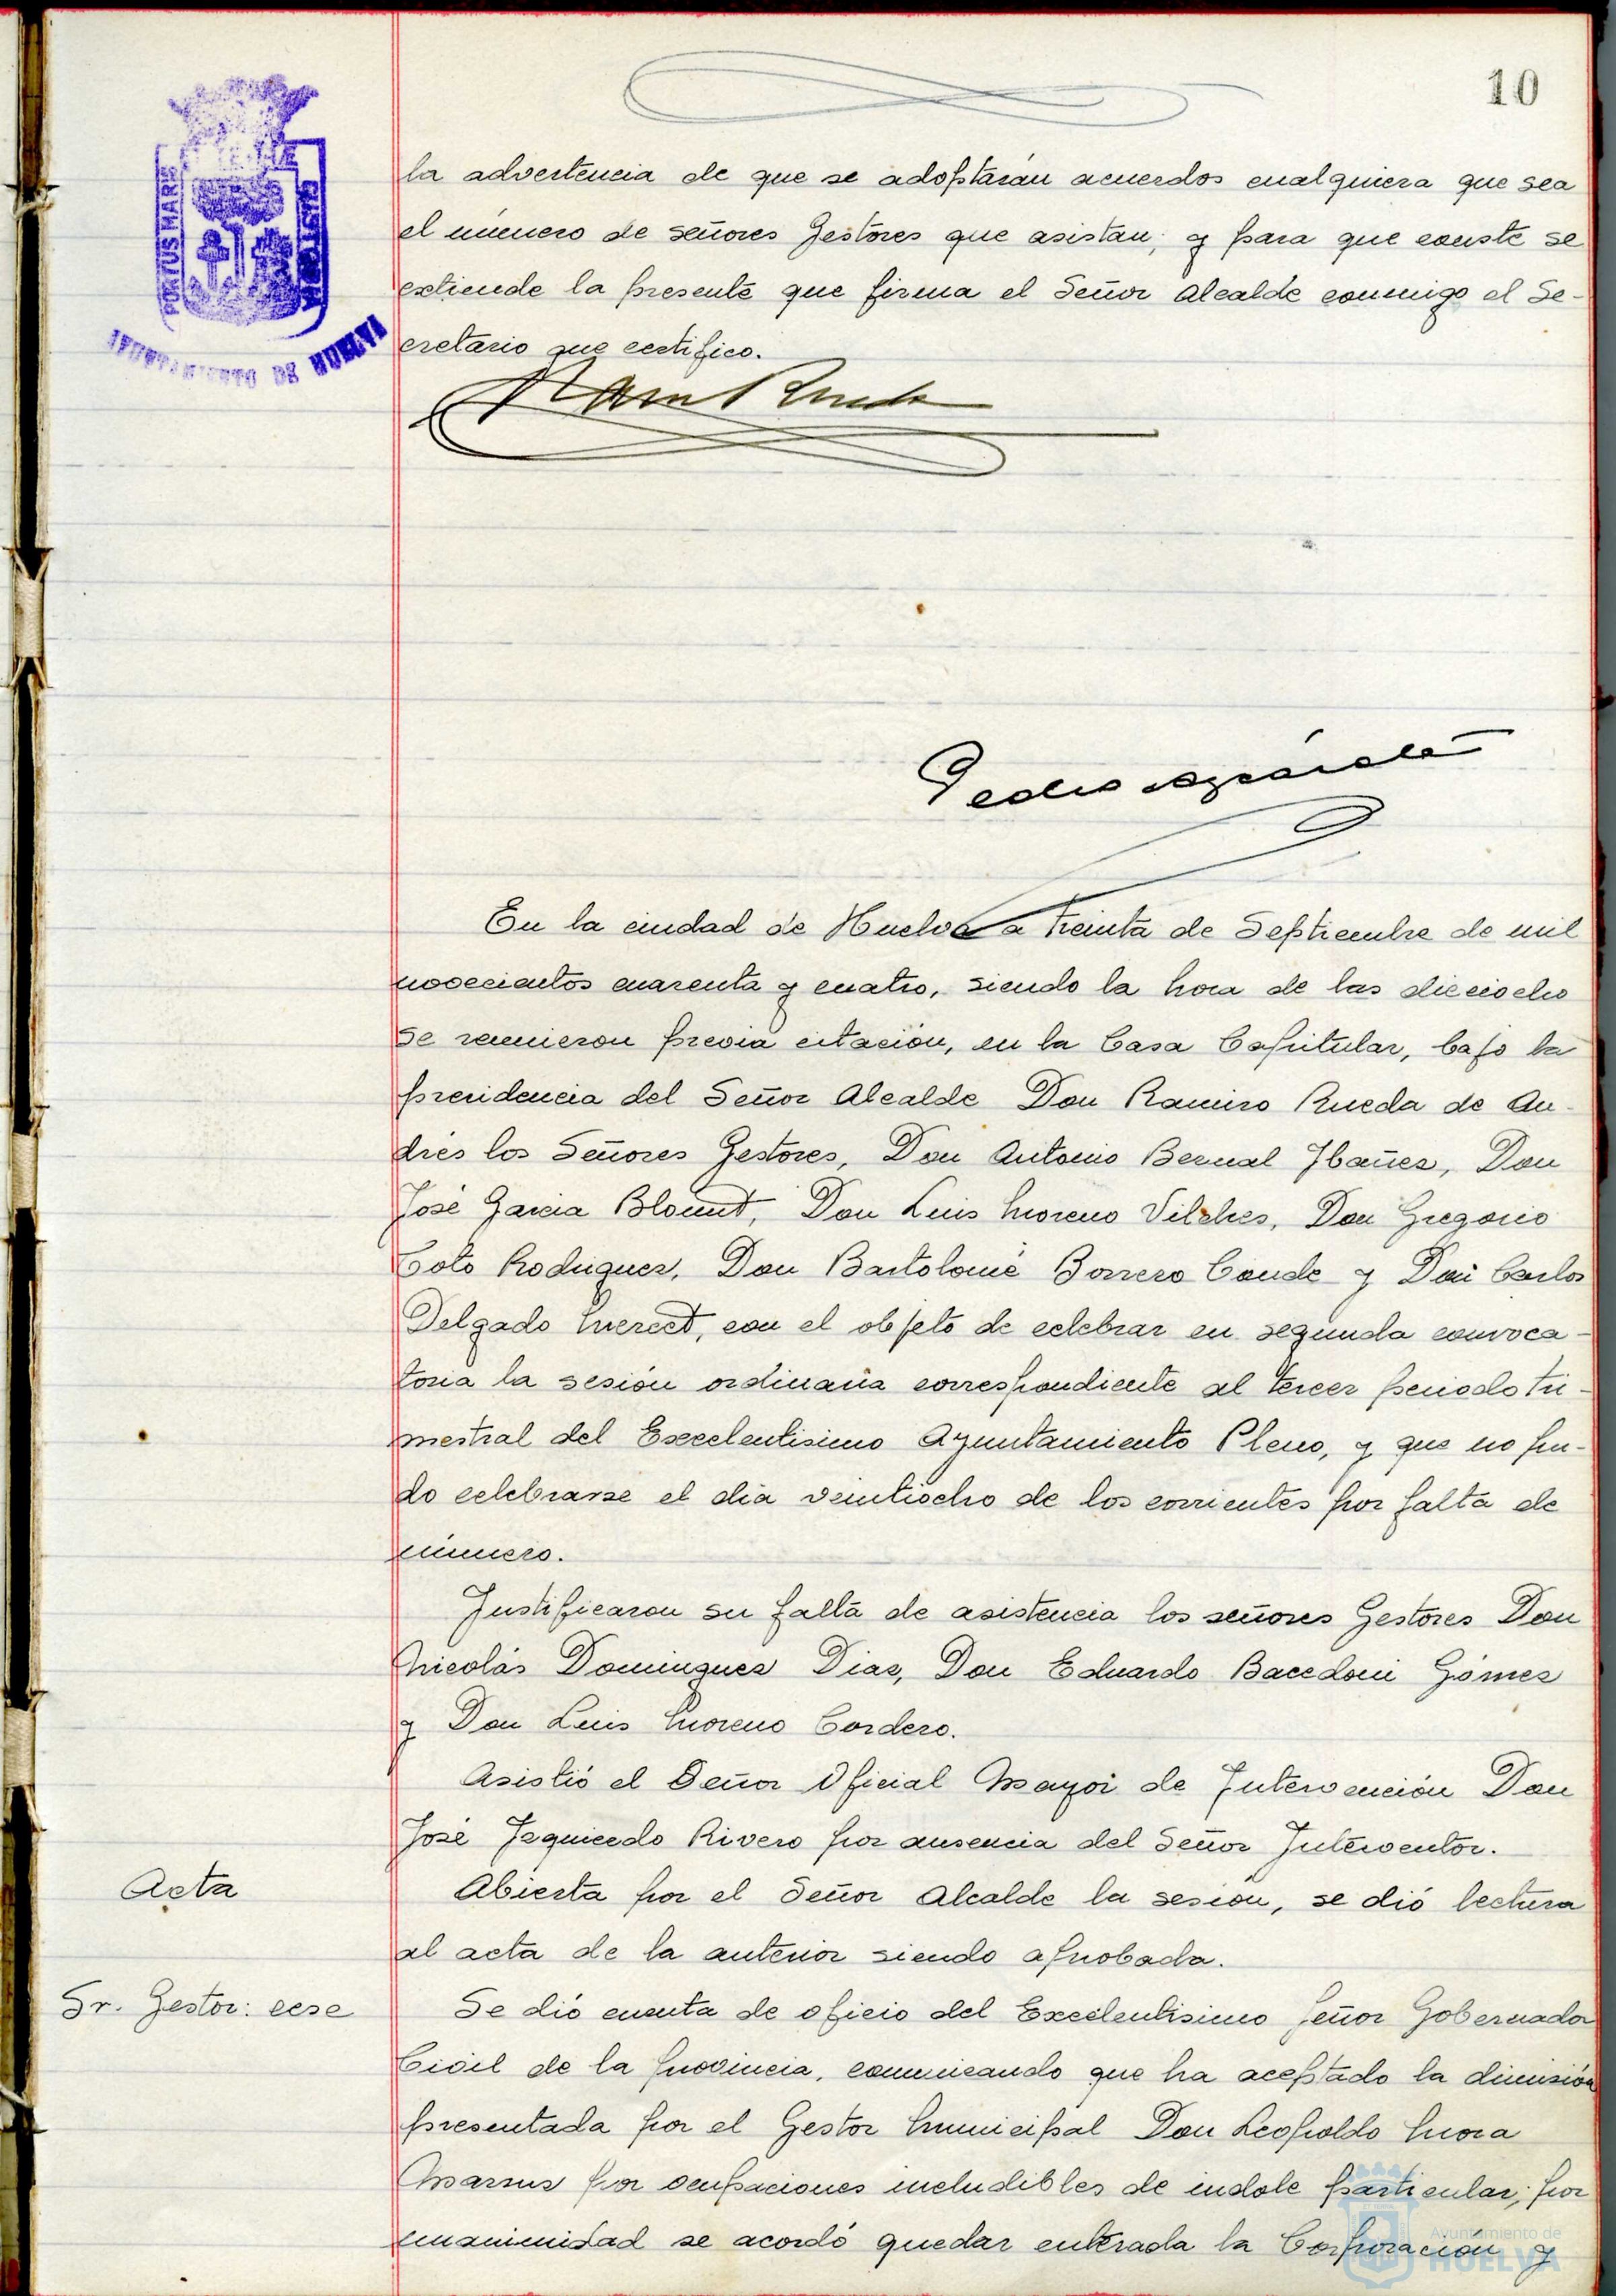 10
PORTUS MARIS
AYUNTAMIENTO DE HUELVA
la advertencia de que se adoptarán acuerdos cualquiera que sea
el número de señores Gestores que asistan; y para que conste se
extiende la presente que firma el Señor Alcalde conmigo el Se-
cretario que certifico.
En la ciudad de Huelva a treinta de Septiembre de mil
novecientos cuarenta y cuatro, siendo la hora de las dieciocho
se reunieron previa citación, en la Casa Capitular, bajo la
presidencia del Señor Alcalde Don Ramiro Rueda de An-
drés los Señores Gestores, Don Antonio Bernal Ibañez, Don
José Garcia Blount, Don Luis Moreno Vilches, Don Gregorio
Coto Rodriguez, Don Bartolomé Borrero Conde y Don Carlos
Delgado con el objeto de celebrar en segunda convoca-
toria la sesión ordinaria correspondiente al tercer periodo tri-
mestral del Excelentisimo Ayuntamiento Pleno, y que no pu-
do celebrarse el día veintiocho de los corrientes por falta de
número.
Justificaron su falta de asistencia los señores Gestores Don
Nicolás Dominguez Diaz, Don Eduardo Gómez
y Don Luis Moreno Cordero.
Asistió el Señor Oficial Mayor de Intervención Don
José Izquierdo Rivero por ausencia del Señor Interventor.
Acta
Abierta por el Señor Alcalde la sesión, se dió lectura
al acta de la anterior siendo aprobada.
Sr. Gestor: cese
Se dió cuenta de oficio del Excelentisimo Señor Gobernador
Civil de la provincia, comunicando que ha aceptado la dimisión
presentada por el Gestor Municipal Don Leopoldo Mora
por ocupaciones ineludibles de indole particular; por
unanimidad se acordó quedar enterada la Corporación y
Ayuntamiento de
HUELVA